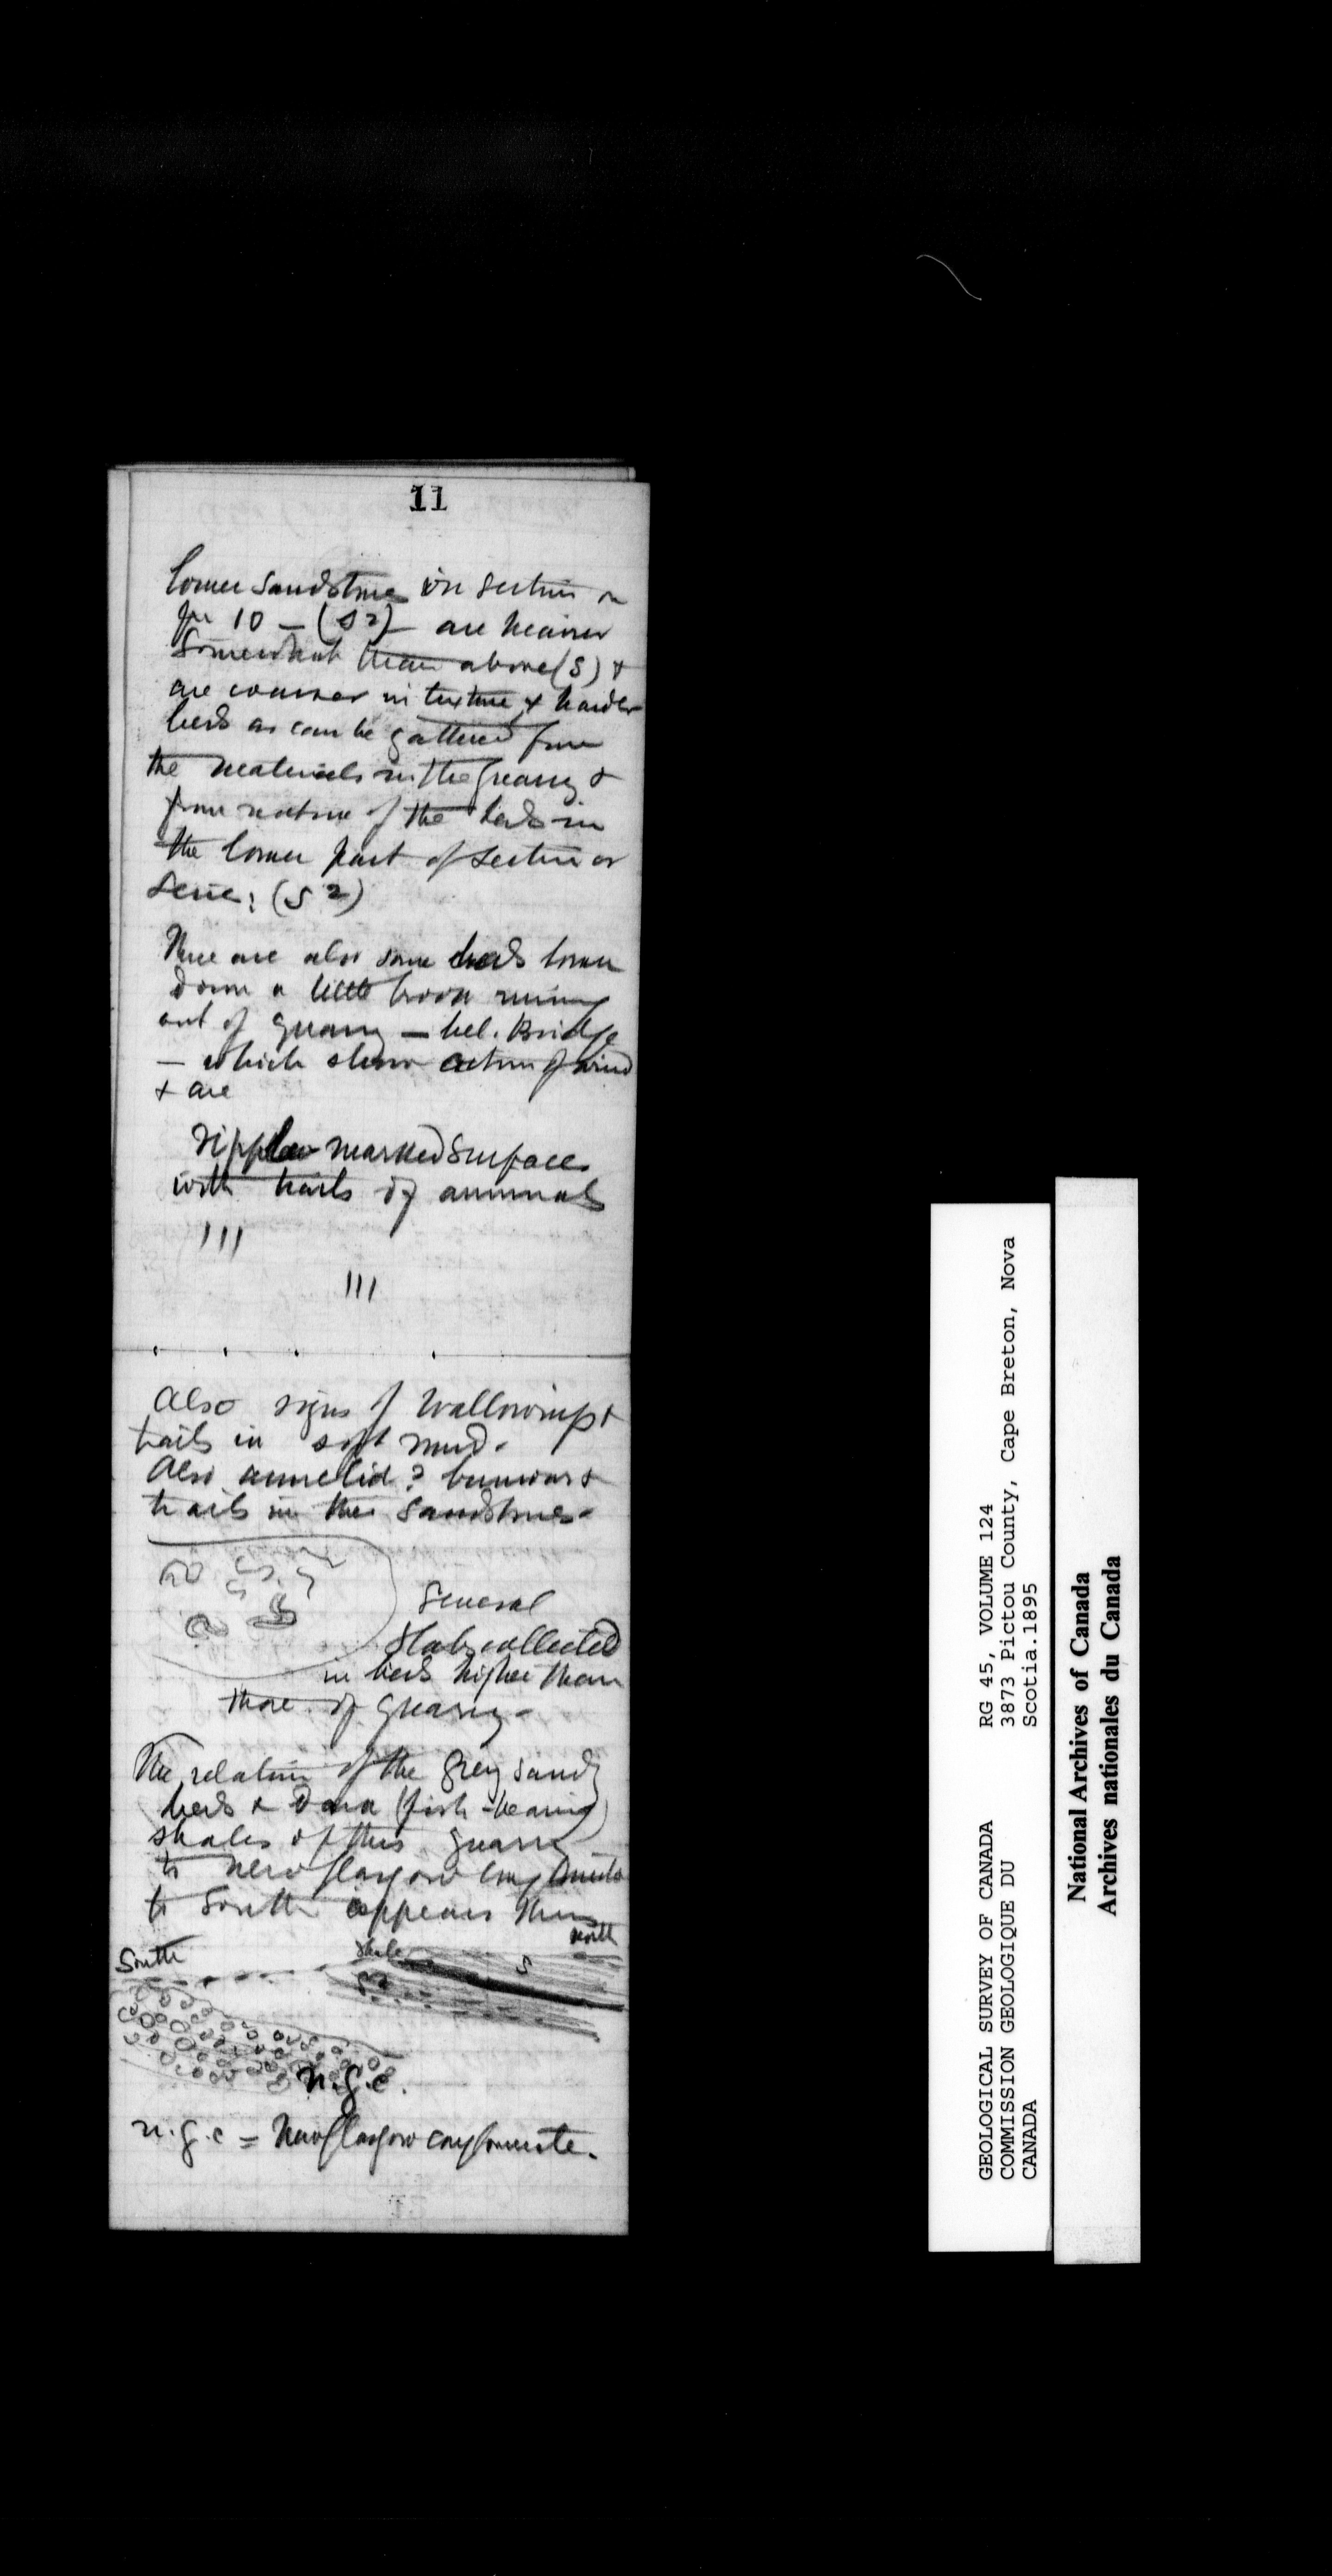 11
Lower sandstones in section on
pp 10 — (S2) — are heavier
somewhat than above (S) &
are coarser in texture & harder
beds as can be gathered from
the materials in the quarry &
from nature of the beds in
the lower part of section or
Series (S2)
There are also some beds lower
down a little brook running
out of quarry — bel. Bridge
— which show action of wind
& are
ripple marked surfaces
with trails of animals
Also signs of wallowings &
trails in soft mud.
Also annelid? burrows &
trails in the sandstones.
Several
Slabs collected
in beds higher than
those of quarry.
The relation of the grey sandy
beds & dark (fish-bearing)
shales of this quarry
to New Glasgow conglomerate
to South appears thus
North
South
Shale
S
S2
N.G.C.
n.g.c = New Glasgow conglomerate.
GEOLOGICAL SURVEY OF CANADA RG 45, VOLUME 124
COMMISSION GEOLOGIQUE DU 3873 Pictou County, Cape Breton, Nova
CANADA Scotia.1895
National Archives of Canada
Archives nationales du Canada